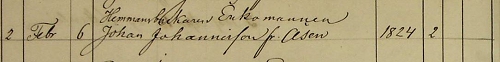 Hemmansbrukaren Enkomannen
2 Febr 6 Johan Johannisson fr. Åsen 1824 2